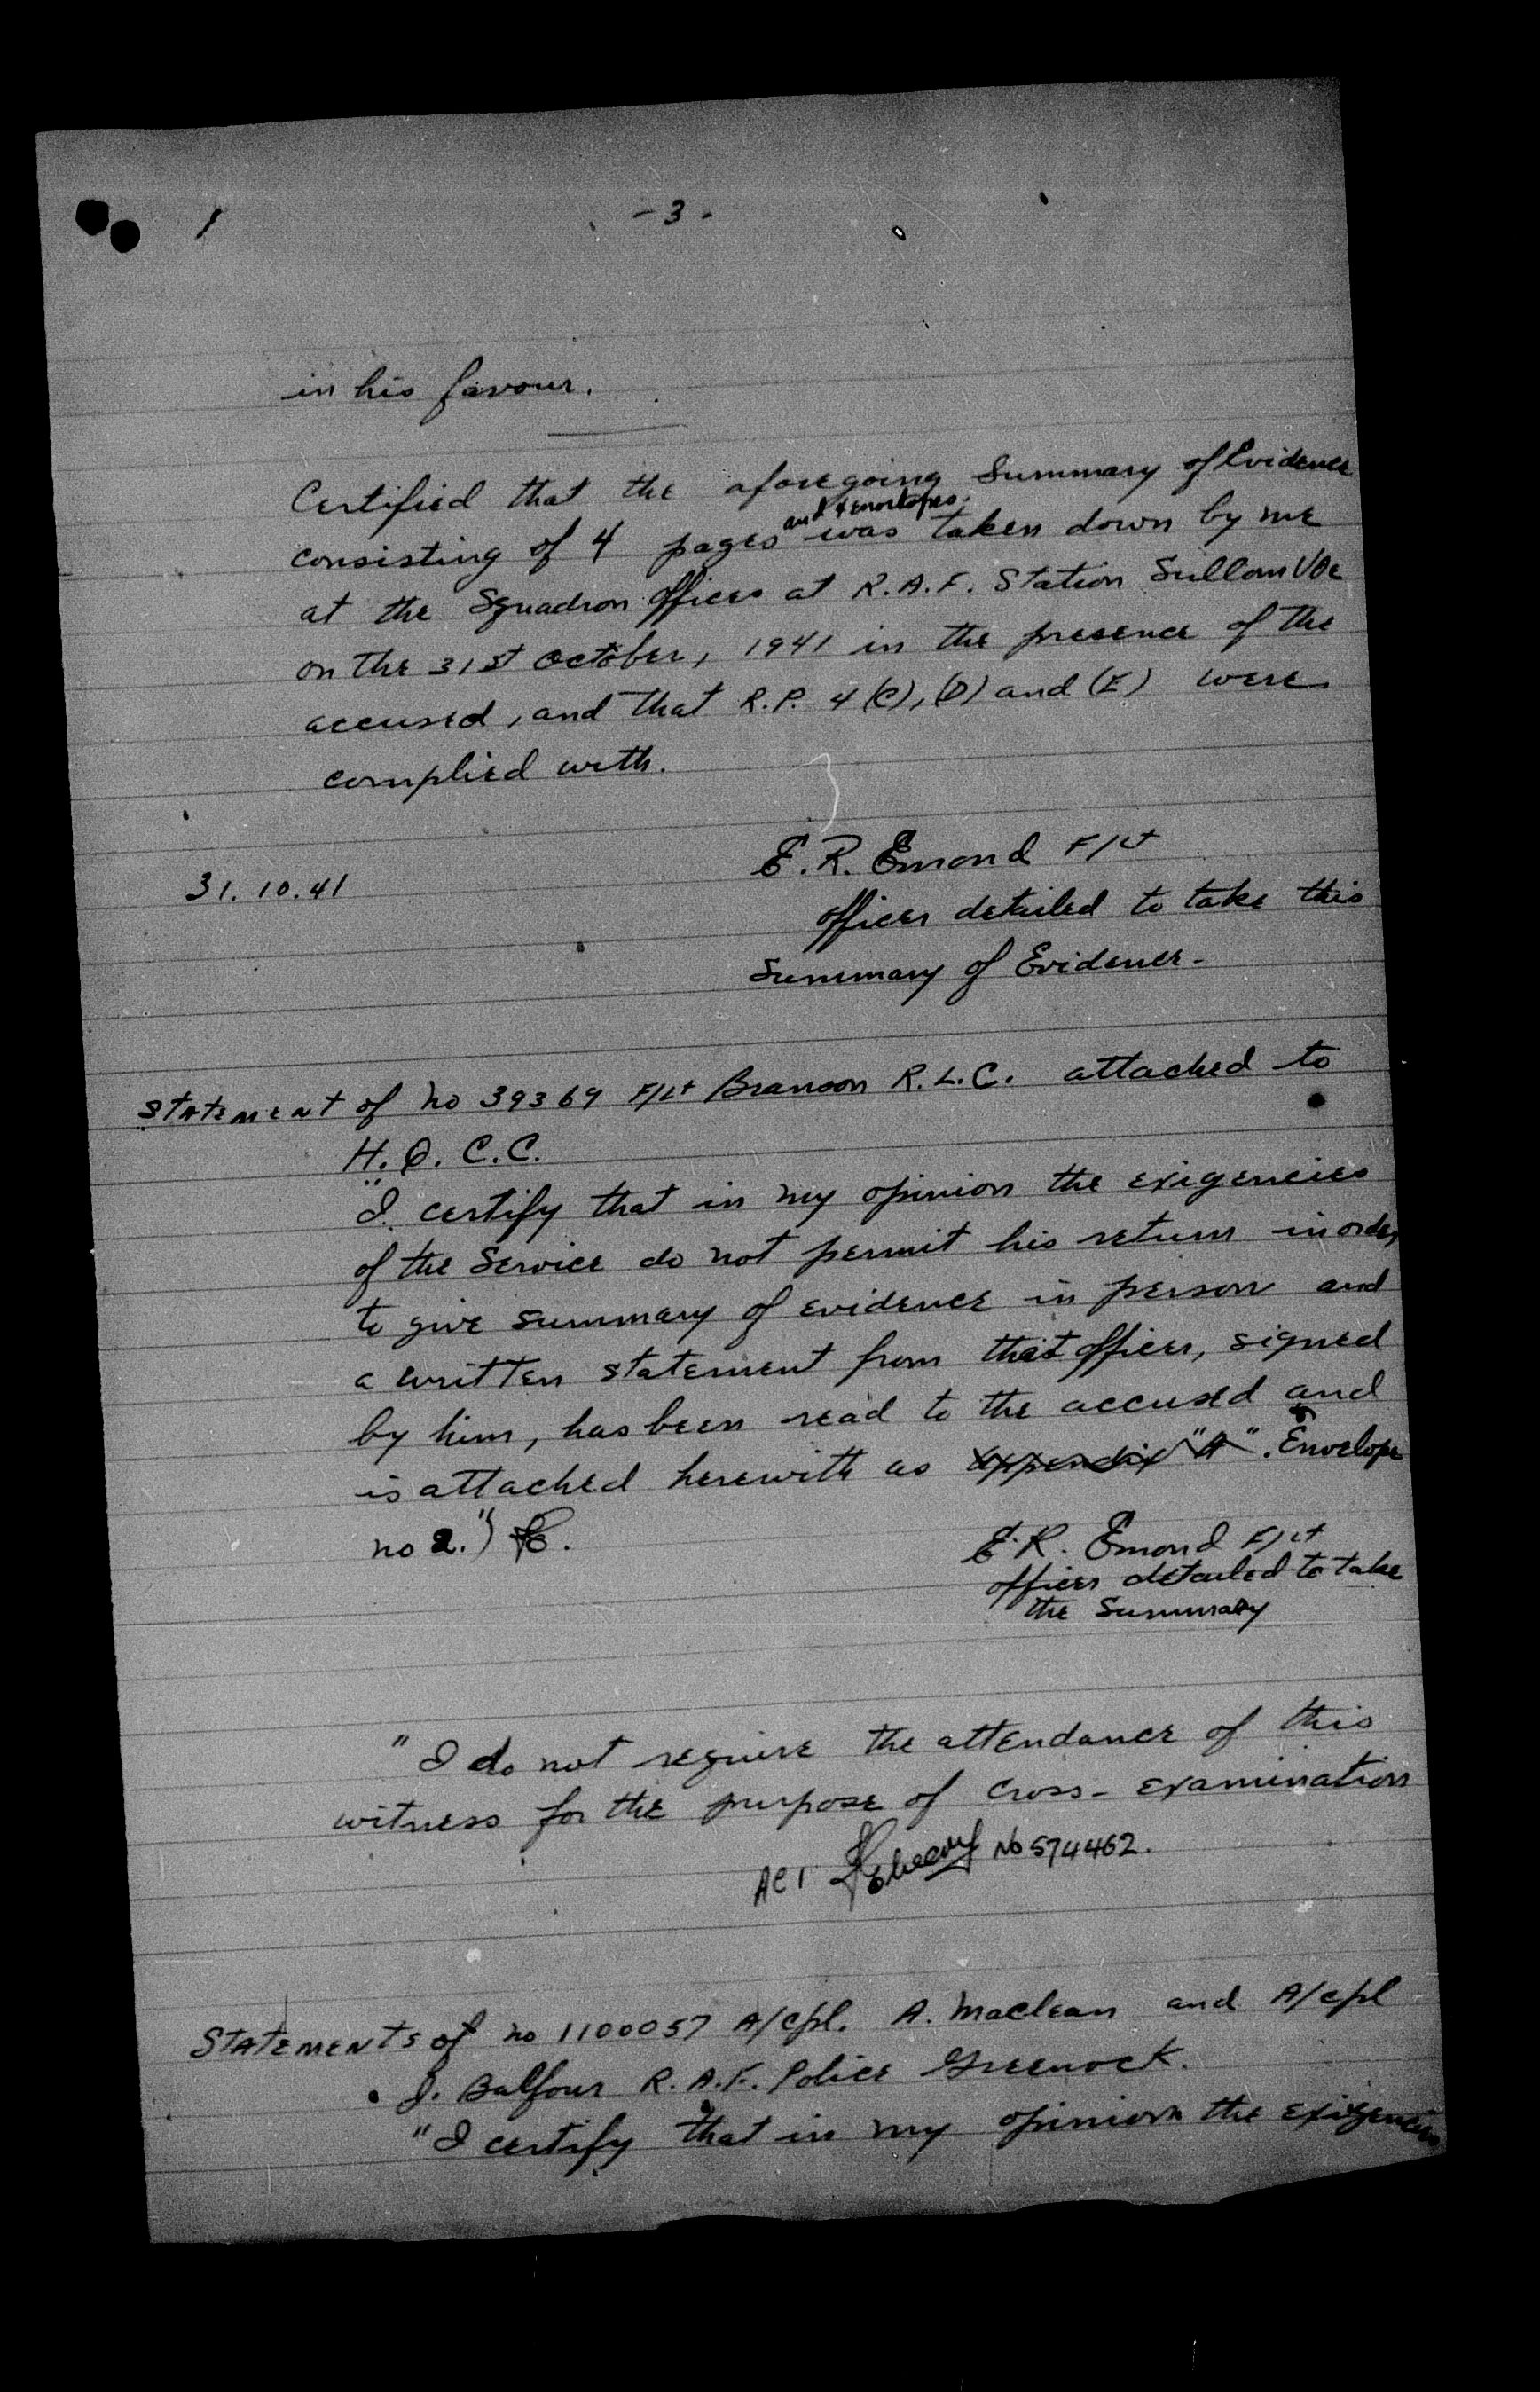 - 3 -
in his favour.
Certified that the aforegoing Summary of Evidence
and 4 envelopes.
consisting of 4 pages was taken down by me
at the Squadron offices at R.A.F. Station Sullom Voe
on the 31st October, 1941 in the presence of the
accused, and that R.P. 4 (C), (D) and (E) were
complied with.
31.10.41
E.R. Emond F/Lt
officer detailed to take this
Summary of Evidence -
Statement of no 39369 F/Lt Branson R.L.C. attached to
H.Q. C.C.
"I certify that in my opinion the exigencies
of the Service do not permit his return in order
to give summary of evidence in person and
a written statement from that officer, signed
by him, has been read to the accused and
is attached herewith as appendix "A". Envelope
no 2.")
E.R. Emond F/Lt
officer detailed to take
the Summary
"I do not require the attendance of this
witness for the purpose of cross-examination
AC1 No 574462.
Statements of no 1100057 A/Cpl. A. Maclean and A/Cpl
J. Balfour R.A.F. Police Greenock.
"I certify that in my opinion the exigencies